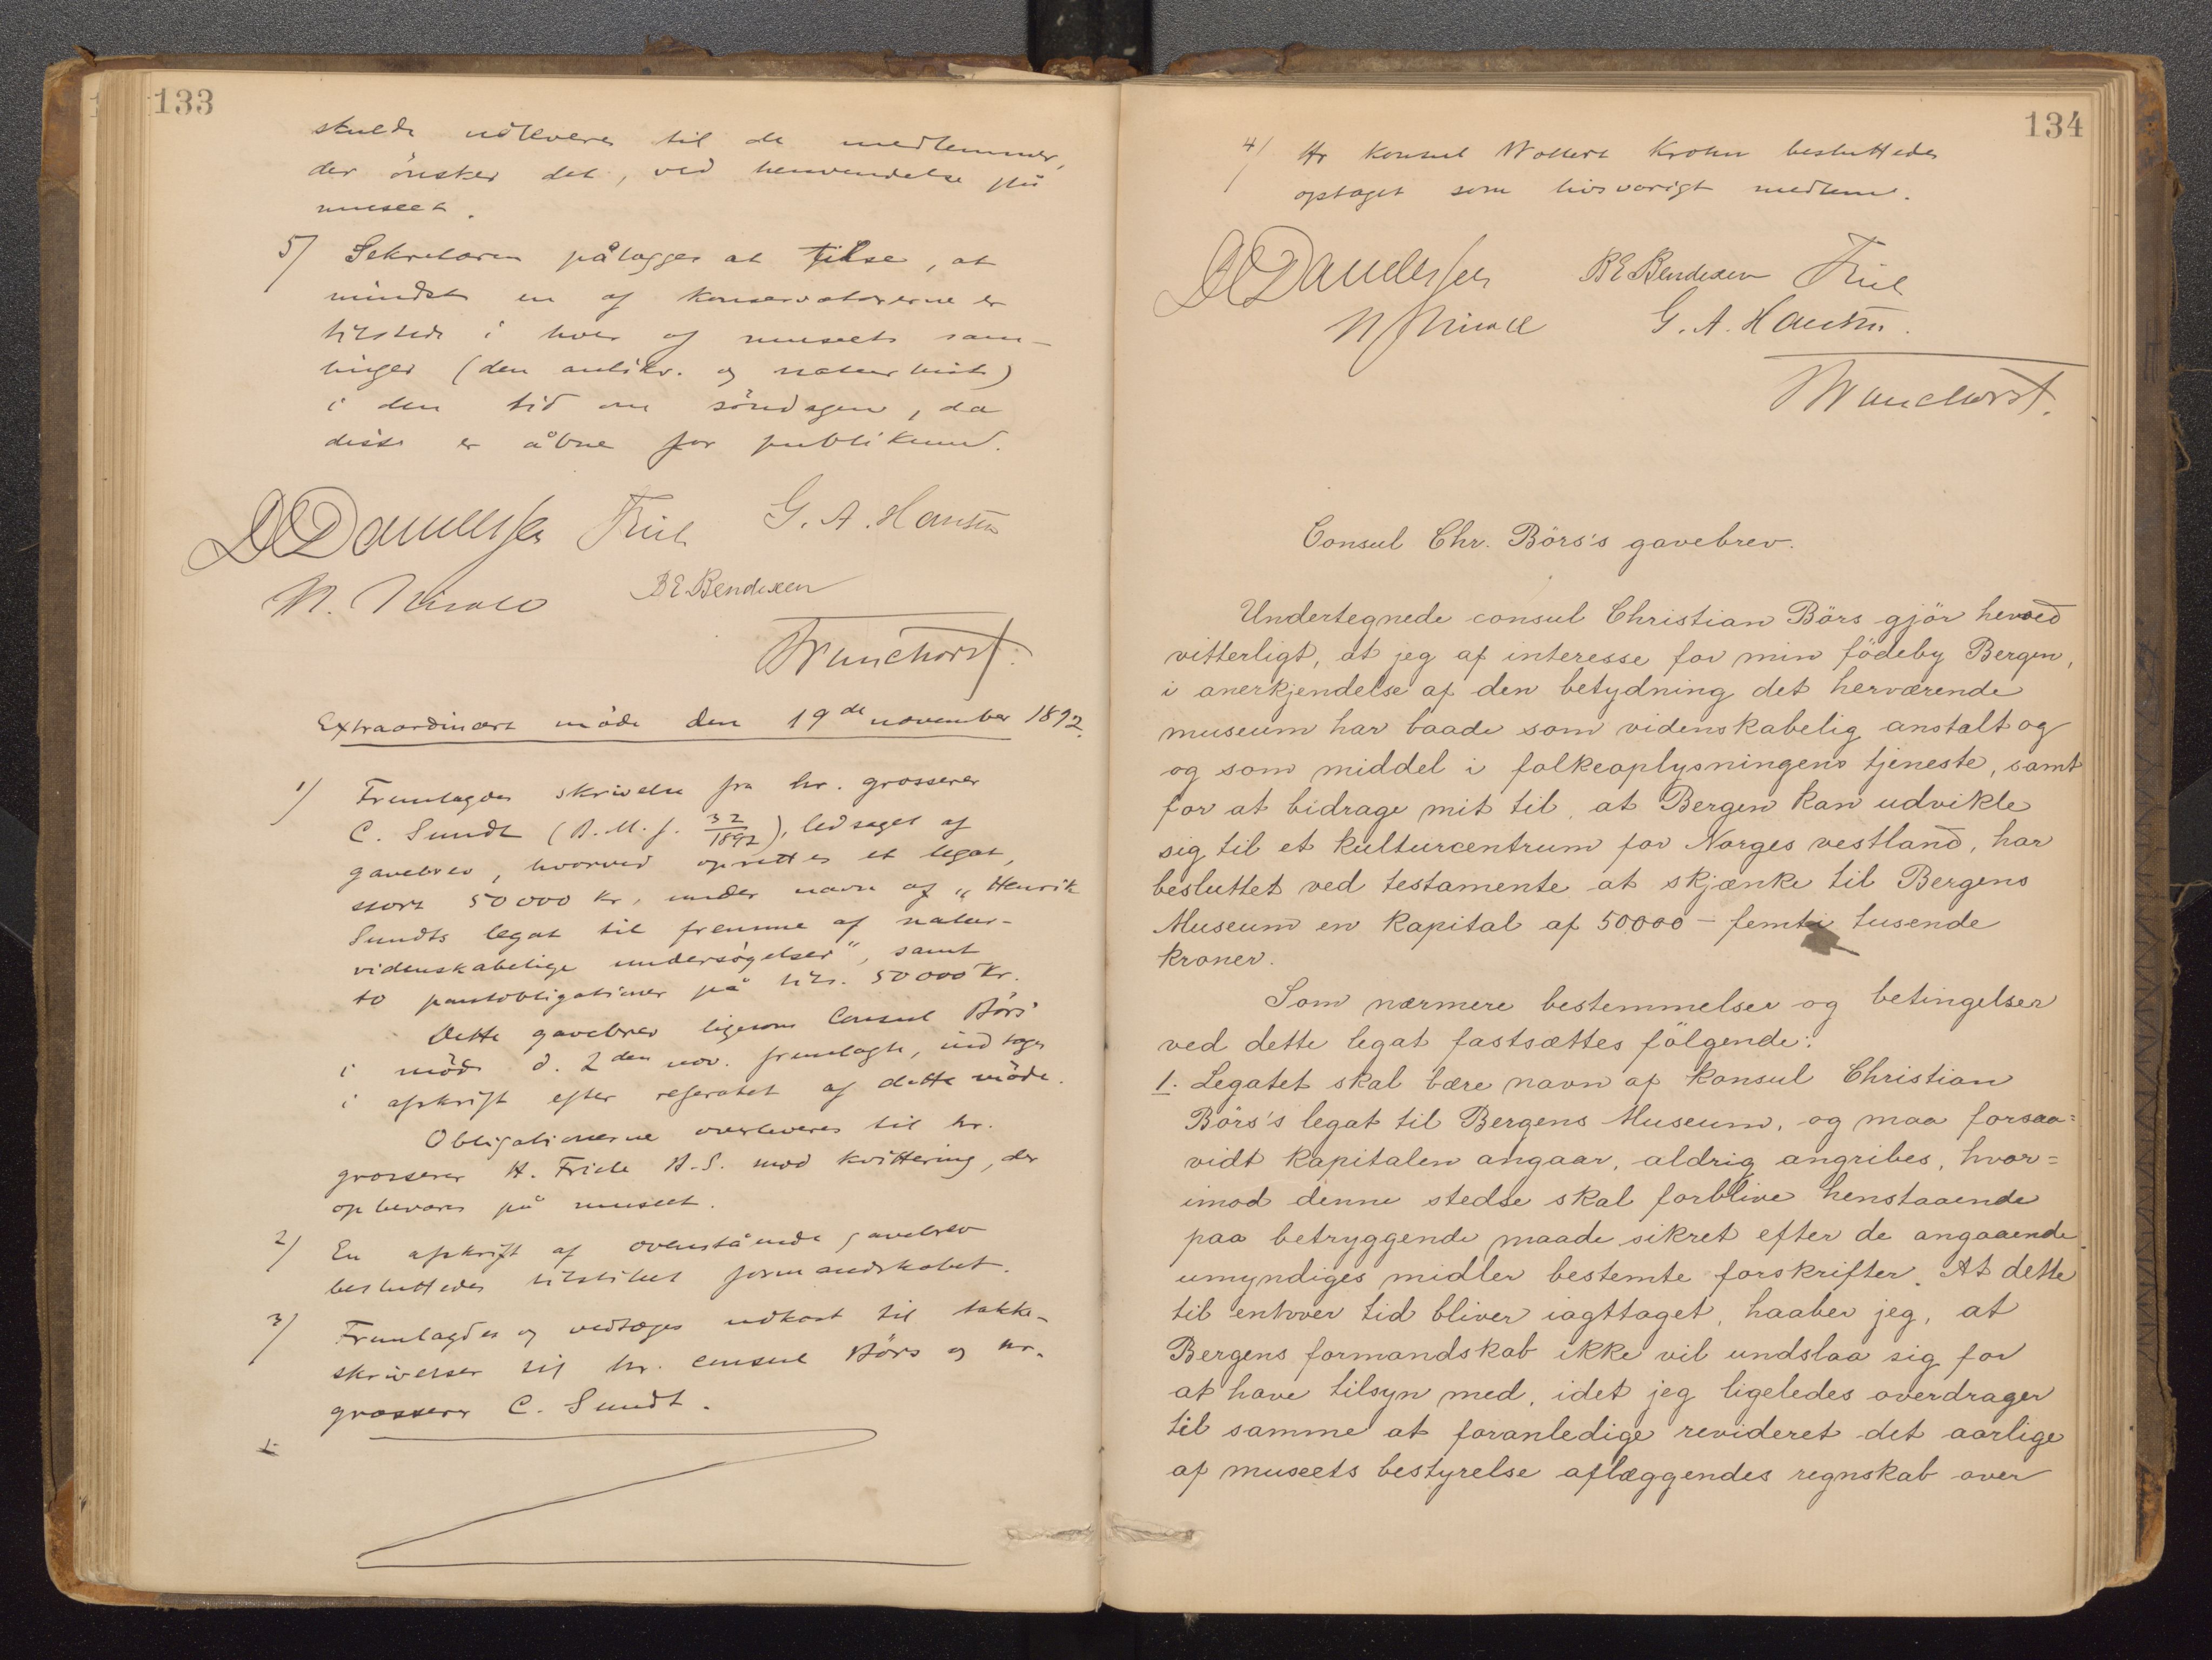 133
skulde udleveres til de medlemmer,
der önsker det, ved henvendelse på
museet.
5/ Sekretæren pålægges at tilse, at
mindst en af konservatorerne er
tilstede i hver af museets sam-
linger (den antikv. og naturhist)
i den tid om söndagen, da
disse er åbne for publikum.
DC Danielssen Friele G. A. Hansen
N. Nicol B E Bendixen
J Brunchorst.
Extraordinært möde den 19de november 1892.
1/ Fremlagdes skrivelse fra hr. grosserer
C. Sundt (B. M. j. 32/1892), ledsaget af
gavebrev, hvorved oprettes et legat,
stort 50 000 kr, under navn af "Henrik
Sundts legat til fremme af natur-
videnskabelige undersøgelser", samt
to pantobligationer på tils. 50 000 kr.
Dette gavebrev ligesom Consul Börs'
i möde d. 2den nov. fremlagte, indtages
i afskrift efter referatet af dette möde.
Obligationerne overleveres til hr.
grosserer H. Friele H. S. mod kvittering, der
opbevares på museet.
2/ En afskrift af ovenstående gavebrev
besluttedes tilstillet formandskabet.
3/ Fremlagdes og vedtoges udkast til takke-
skrivelser til hr. consul Börs og hr.
grosserer C. Sundt.
134
4/ Hr konsul Wollert Krohn besluttedes
optaget som livsvarigt medlem.
DC Danielssen B E Bendixen Friele
N Nicol G. A. Hansen.
J Brunchorst.
Consul Chr. Börs's gavebrev.
Undertegnede consul Christian Börs gjör herved
vitterligt, at jeg af interesse for min födeby Bergen,
i anerkjendelse af den betydning det herværende
museum har baade som videnskabelig anstalt og
og som middel i folkeoplysningens tjeneste, samt
for at bidrage mit til, at Bergen kan udvikle
sig til et kulturcentrum for Norges vestland, har
besluttet ved testamente at skjænke til Bergens
Museum en kapital af 50.000 – femti tusende
kroner.
Som nærmere bestemmelser og betingelser
ved dette legat fastsættes fölgende:
1. Legatet skal bære navn af konsul Christian
Börs's legat til Bergens Museum, og maa forsaa=
vidt kapitalen angaar, aldrig angribes, hvor=
imod denne stedse skal forblive henstaaende
paa betryggende maade sikret efter de angaaende
umyndiges midler bestemte forskrifter. At dette
til enhver tid bliver iagttaget, haaber jeg, at
Bergens formandskab ikke vil undslaa sig for
at have tilsyn med, idet jeg ligeledes overdrager
til samme at foranledige revideret det aarlige
af museets bestyrelse aflæggendes regnskab over